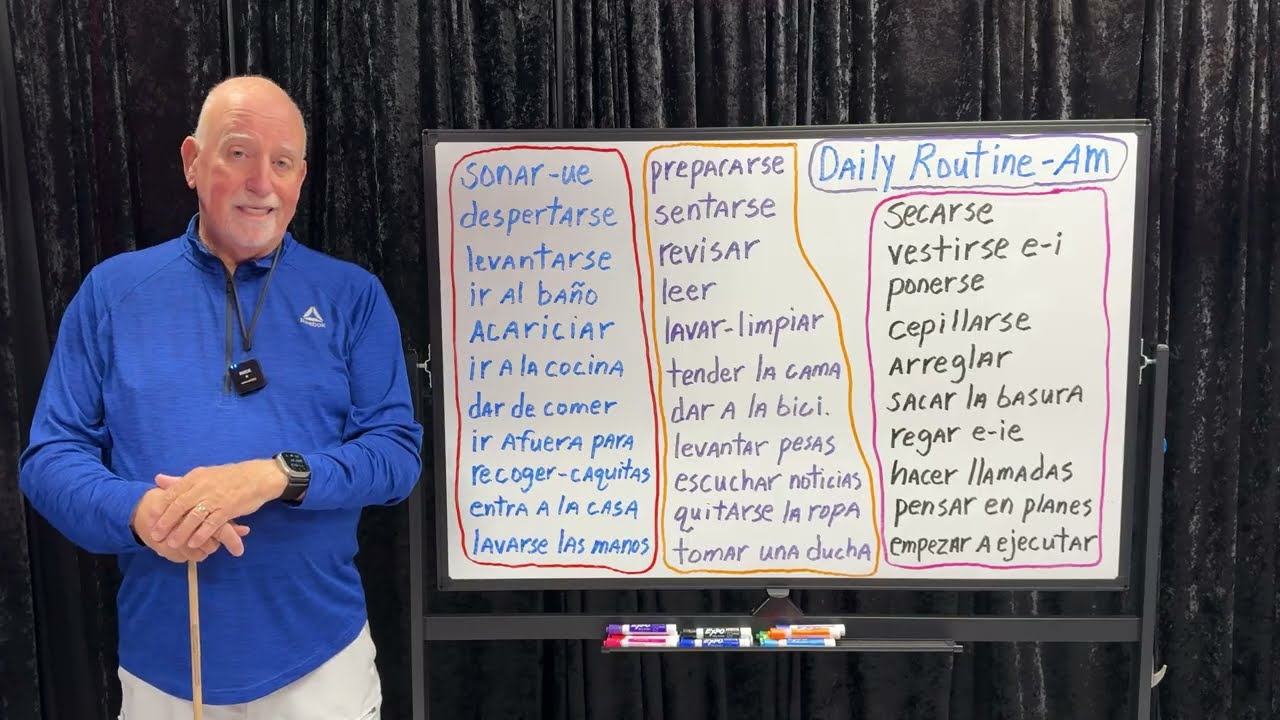 Daily Routine-AM
sonar-ue
despertarse
levantarse
ir al baño
acariciar
ir a la cocina
dar de comer
ir afuera para
recoger-caquitas
entra a la casa
lavarse las manos
prepararse
sentarse
revisar
leer
lavar-limpiar
tender la cama
dar a la bici.
levantar pesas
escuchar noticias
quitarse la ropa
tomar una ducha
secarse
vestirse e-i
ponerse
cepillarse
arreglar
sacar la basura
regar e-ie
hacer llamadas
pensar en planes
empezar a ejecutar
Reebok
EXPO
EXPO